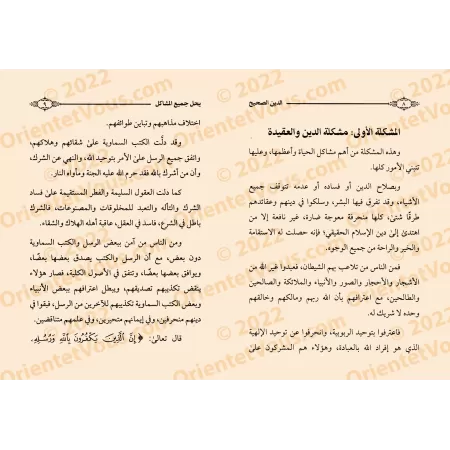 الدين الصحيح
٨
المشكلة الأولى: مشكلة الدين والعقيدة
وهذه المشكلة من أهم مشاكل الحياة وأعظمها، وعليها
تنبني الأمور كلها.
وبصلاح الدين أو فساده أو عدمه تتوقف جميع
الأشياء، وقد تفرق فيها البشر، وسلكوا في دينهم وعقائدهم
طرقًا شتى، كلها منحرفة معوجة ضارة، غير نافعة إلا من
اهتدى إلى دين الإسلام الحقيقي؛ فإنه حصلت له الاستقامة
والخير والراحة من جميع الوجوه.
فمن الناس من تلاعب بهم الشيطان، فعبدوا غير الله من
الأشجار والأحجار والصور والأنبياء والملائكة والصالحين
والطالحين، مع اعترافهم بأن الله ربهم ومالكهم وخالقهم
وحده لا شريك له.
فاعترفوا بتوحيد الربوبية، وانحرفوا عن توحيد الإلهية
الذي هو إفراد الله بالعبادة، وهؤلاء هم المشركون على
يحل جميع المشاكل
٩
اختلاف مذاهبهم وتباين طوائفهم.
وقد دلَّت الكتب السماوية على شقائهم وهلاكهم،
واتفق جميع الرسل على الأمر بتوحيد الله، والنهي عن الشرك،
وأن من أشرك بالله فقد حرم الله عليه الجنة ومأواه النار.
كما دلت العقول السليمة والفطر المستقيمة على فساد
الشرك والتأله والتعبد للمخلوقات والمصنوعات، فالشرك
باطل في الشرع، فاسد في العقل، عاقبة أهله الهلاك والشقاء.
ومن الناس من آمن ببعض الرسل والكتب السماوية
دون بعض، مع أن الرسل والكتب يصدق بعضها بعضًا،
ويوافق بعضها بعضًا، وتتفق في الأصول الكلية، فصار هؤلاء
ينقض تكذيبهم تصديقهم، ويبطل اعترافهم ببعض الأنبياء
وبعض الكتب السماوية تكذيبهم للآخرين من الرسل، فبقوا في
دينهم منحرفين، وفي إيمانهم متحيرين، وفي علمهم متناقضين.
قال تعالى: ﴿إِنَّ ٱلَّذِينَ يَكْفُرُونَ بِٱللَّهِ وَرُسُلِهِۦ
© 2022
OrientetVous.com